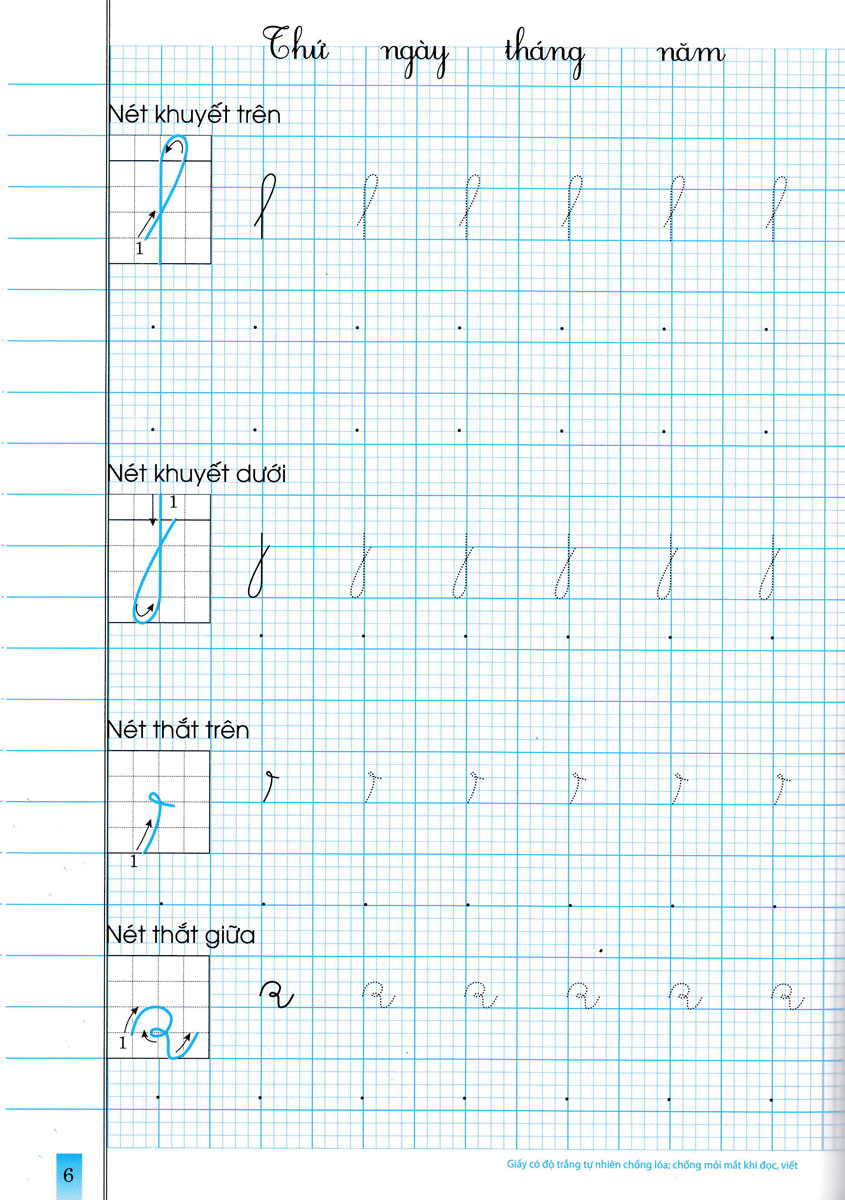 Thứ ngày tháng năm
Nét khuyết trên
1
Nét khuyết dưới
1
Nét thắt trên
1
Nét thắt giữa
1
6
Giấy có độ trắng tự nhiên chống lóa; chống mỏi mắt khi đọc, viết